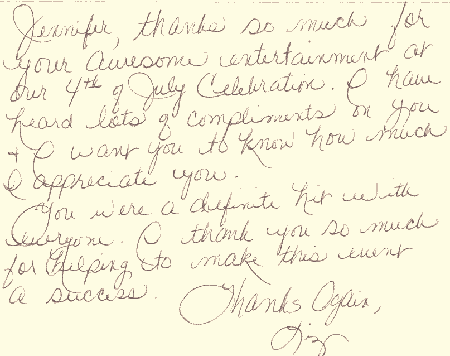 Jennifer, thanks so much for
your awesome entertainment at
our 4th of July Celebration. I have
heard lots of compliments on you
+ I want you to know how much
I appreciate you.
You were a definite hit with
everyone. I thank you so much
for helping to make this event
a success.
Thanks Again,
Liz